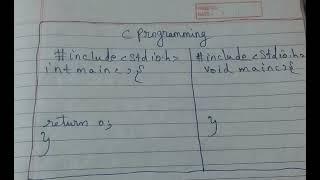 C Programming
#include <stdio.h>
int main<>{
return 0;
}
#include <stdio.h>
void main<>{
}